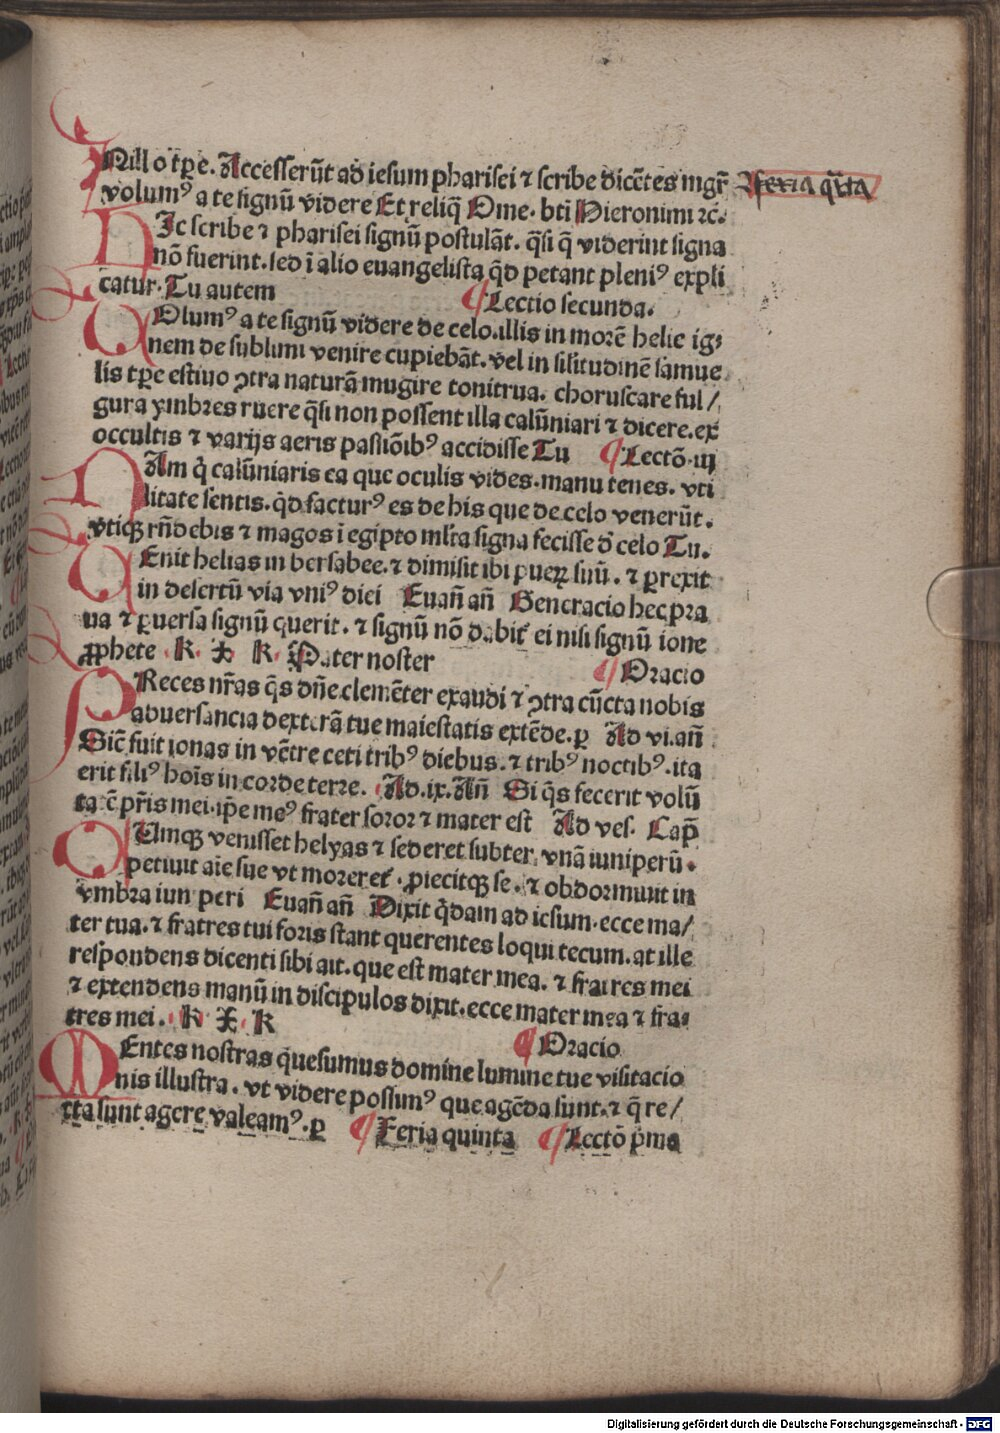 INill o tꝑe. Accesserūt ad iesum pharisei ⁊ scribe dicētes mgr̄
feria q̄rta
volumꝰ a te signū videre Et reliq̄ Ome. bti Hieronimi ⁊c̄.
DIc scribe ⁊ pharisei signū postulāt. q̄si q̄ viderint signa
nō fuerint. sed ī alio euangelista q̄d petant pleniꝰ expli
catur. Tu autem ¶ Lectio secunda.
VOlumꝰ a te signū videre de celo. illis in morē helie ig⸗
nem de sublimi venire cupiebāt. vel in silitudinē samue
lis tꝑe estiuo ꝯtra naturā mugire tonitrua. choruscare ful/
gura ymbres ruere q̄si non possent illa calūniari ⁊ dicere. ex
occultis ⁊ varijs aeris passiōibꝰ accidisse Tu ¶ Lectō. iij
NAm q̇ calūniaris ea que oculis vides. manu tenes. vti
litate sentis. q̇d facturꝰ es de his que de celo venerūt.
vtiqꝫ rn̄debis ⁊ magos ī egipto ml̄ta signa fecisse d̄ celo Tu.
VEnit helias in bersabee. ⁊ dimisit ibi pueꝝ suū. ⁊ ꝑrexit
in desertū via vniꝰ diei Euan̄ an̄ Generacio hec pra
ua ⁊ ꝑuersa signū querit. ⁊ signū nō dabit᷑ ei nisi signū ione
ꝓphete . k. ⁊ k. Pater noster ¶ Oracio
PReces nr̄as q̄s dn̄e clemēter exaudi ⁊ ꝯtra cūcta nobis
aduersancia dexterā tue maiestatis extēde. ꝑ Ad vi. an̄
Sic̄ fuit ionas in vētre ceti tribꝰ diebus. ⁊ tribꝰ noctibꝰ. ita
erit filiꝰ hoīs in corde terre. Ad. ix. An̄ Si q̄s fecerit volū
tatē pr̄is mei. ip̄e meꝰ frater soror ⁊ mater est Ad ves. Cap̄
CUmqꝫ venisset helyas ⁊ sederet subter. vnā iuniperū.
petiuit aīe sue vt moreret᷑. ꝓiecitqꝫ se. ⁊ obdormiuit in
vmbra iuniperi Euan̄ an̄ Dixit q̇dam ad iesum. ecce ma/
ter tua. ⁊ fratres tui foris stant querentes loqui tecum. at ille
respondens dicenti sibi ait. que est mater mea. ⁊ fratres mei
⁊ extendens manū in discipulos dixit. ecce mater mea ⁊ fra⸗
tres mei. k ⁊ k ¶ Oracio
MEntes nostras q̄sumus domine lumine tue visitacio
nis illustra. vt videre possimꝰ que agēda sunt. ⁊ q̄ re/
cta sunt agere valeamꝰ. ꝑ ¶ Feria quinta ¶ Lectō pͥma
Digitalisierung gefördert durch die Deutsche Forschungsgemeinschaft - DFG